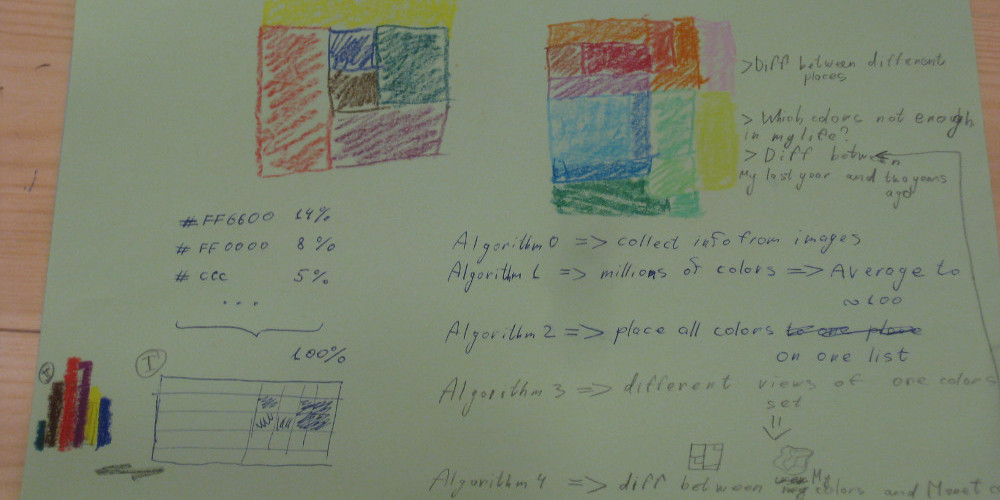 > Diff between different
places
> Which colors not enough
in my life?
> Diff between
My last year and two years
ago
# FF6600 14%
# FF0000 8%
# ccc 5%
...
100%
Algorithm 0 => collect info from images
Algorithm 1 => millions of colors => Average to
~100
Algorithm 2 => place all colors to one place
on one list
Algorithm 3 => different views of one colors
set
Algorithm 4 => diff between my colors and Monet
My
I